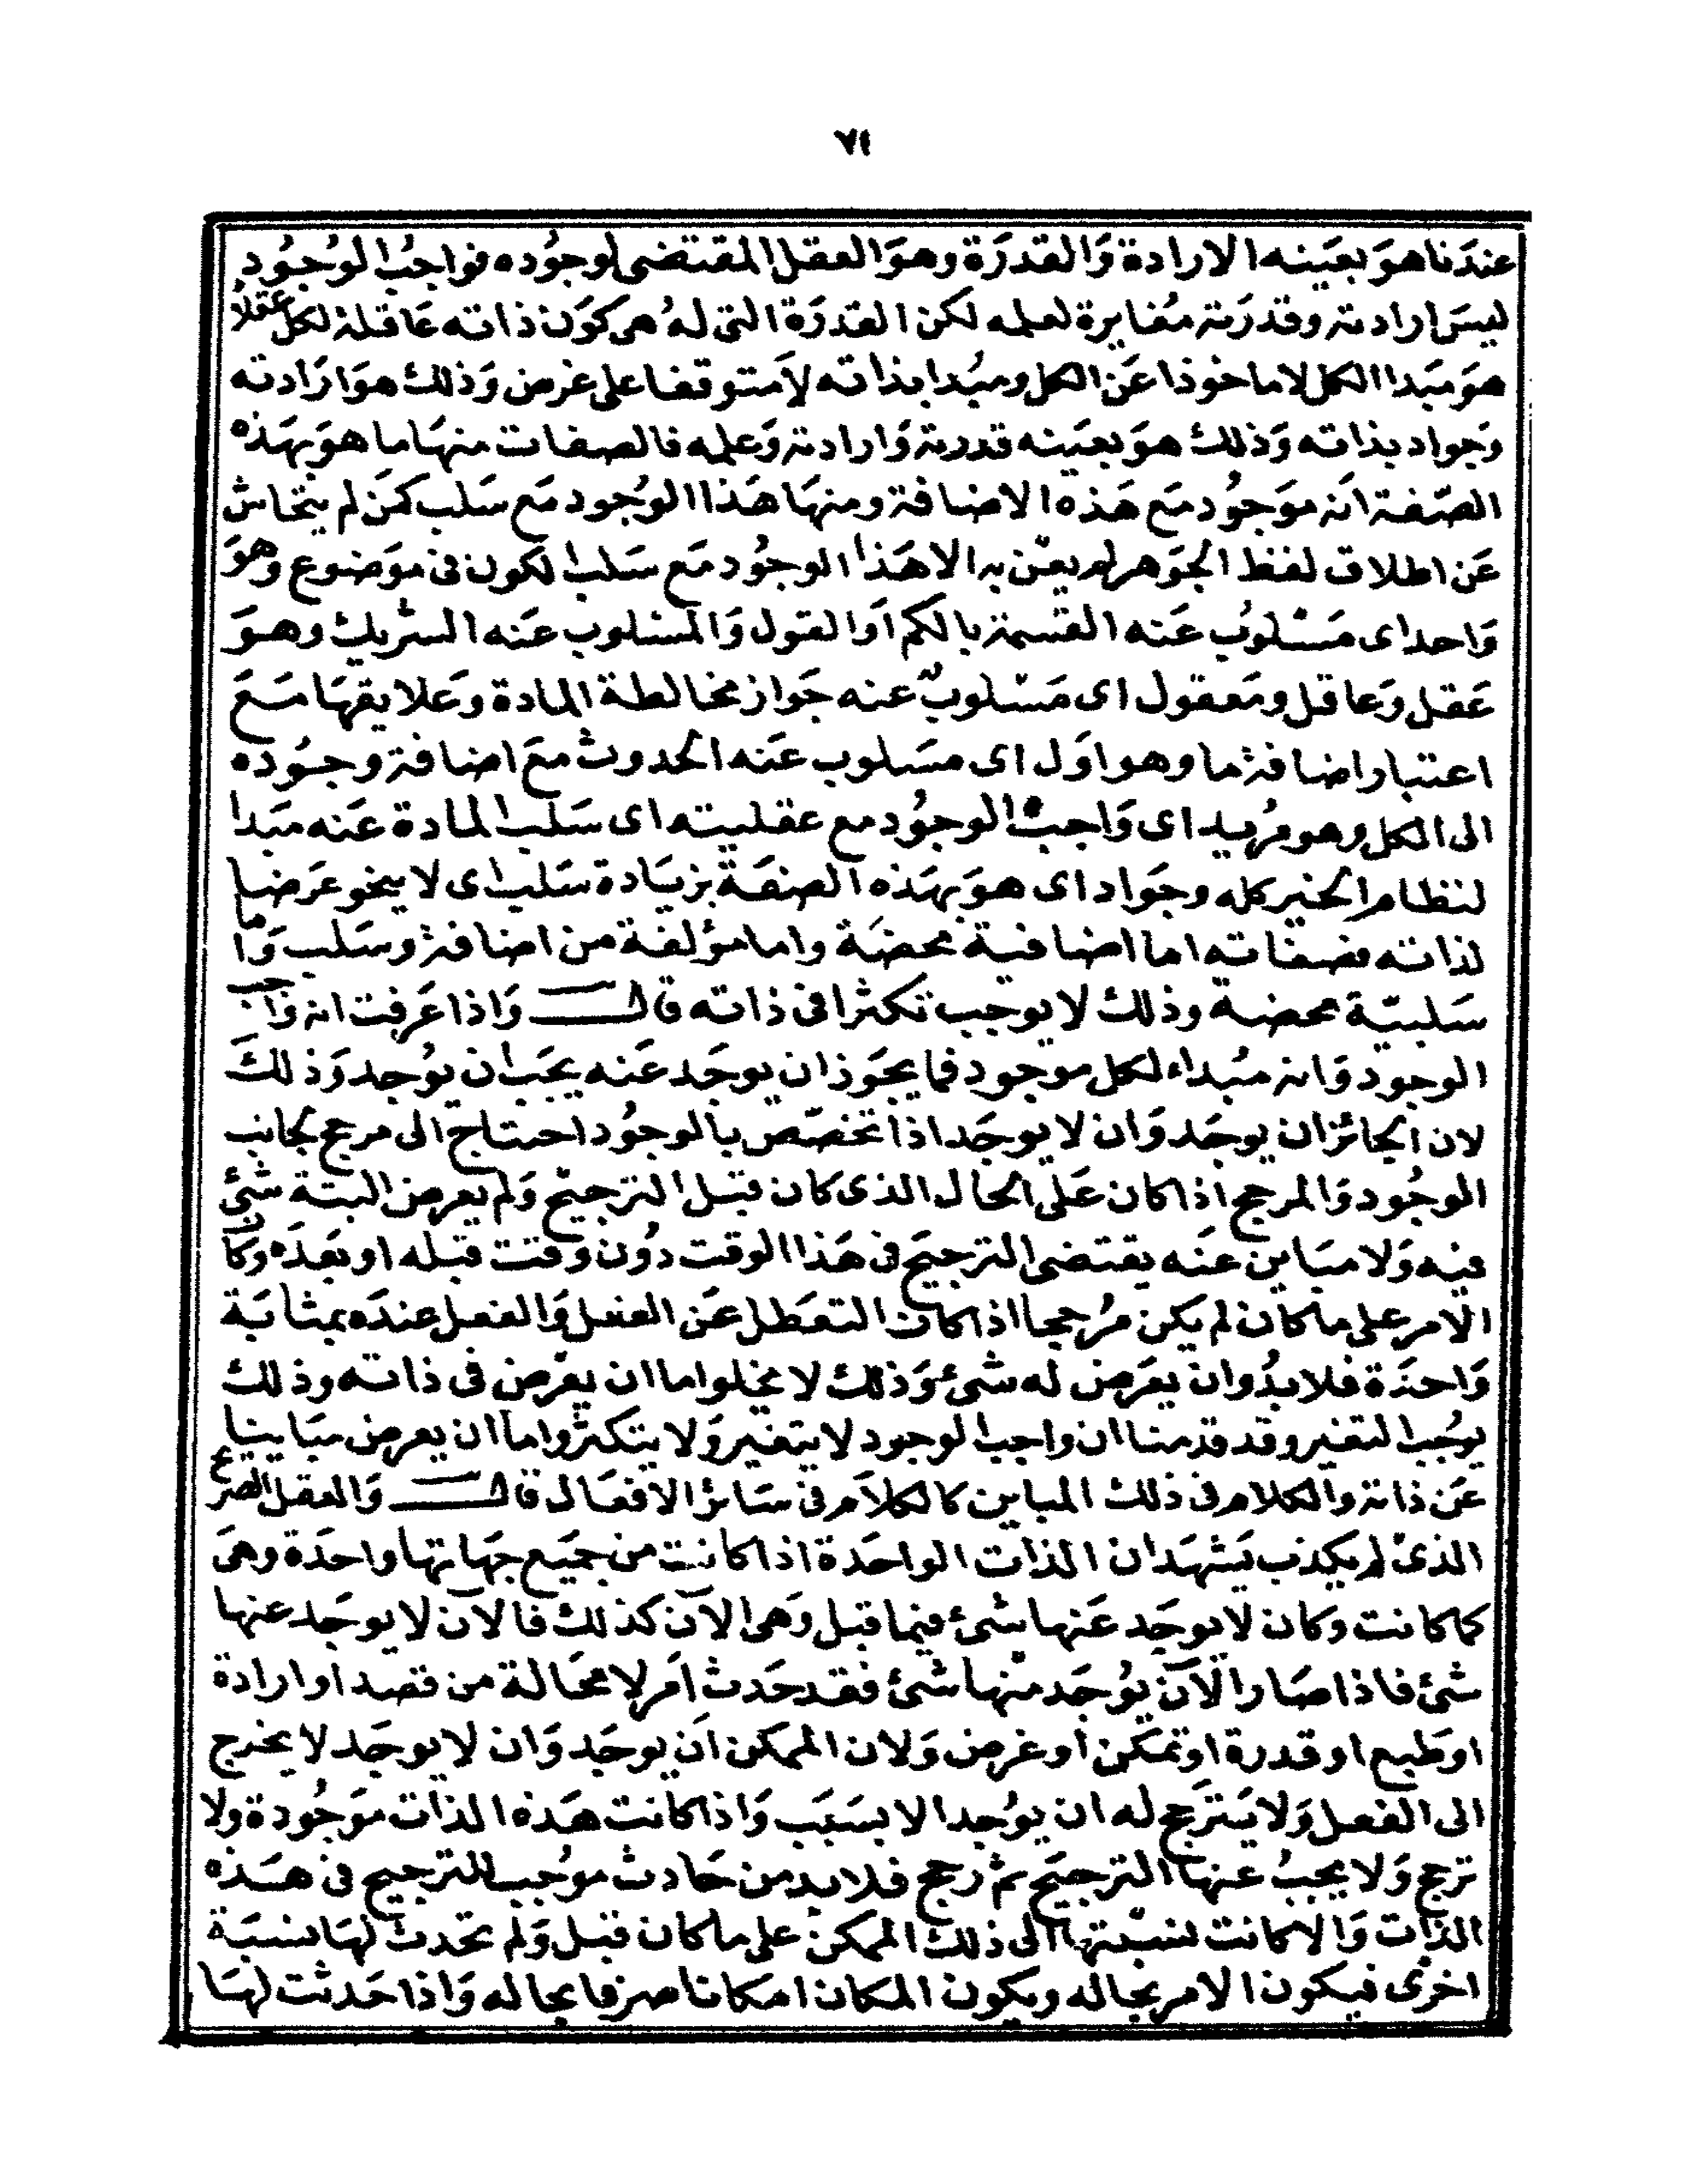 ٧١
عندَنا هوَ بعَينه الارادة وَالقدرَة وهوَ العقل المقتضى لوجوُده فواجبُ الوُجوُدِ
ليسَ ارادته وقدرَته مغايرة لعلمه لكن القدرَة التى لهُ هى كوَن ذاته عَاقلة لكل عقلاً
هوَ مبَدا الكل لا ماخوذا عَن الكل ومبُدا بذاته لاَ متوقفا على غرض وَذلك هوَ ارَادته
وَجواد بذاته وَذلك هوَ بعيَنه قدرته وَارادته وَعلمه فالصفات منهَا ما هوَ بهَذه
الصّفة انَه موَجوُد مَع هَذه الاضافة ومنهَا هَذا الوُجود مَع سَلب كمَن لم يتحاش
عَن اطلاق لفظ الجوَهر لم يعَن به الا هَذا الوجوُد مَع سَلب الكون فى موَضوع وهوَ
وَاحد اى مَسْلوبُ عَنه القسمة بالكم اوَ القول وَالمسْلوب عَنه الشريك وهوَ
عَقل وَعاقل ومَعقول اى مَسْلوبٌ عنه جَواز مخالطة المادة وَعلايقهَا مَعَ
اعتبار اضافة ما وهو اوَل اى مسَلوب عَنه الحدوث معَ اضافة وجوُده
الى الكل وهو مُريد اى وَاجبُ الوجوُد مع عقليته اى سَلب المادة عَنه مبَدا
لنظام الخير كله وجوَاد اى هوَ بهَذه الصفَة بزيَادة سَلب اى لا ينحو عرَضا
لذاته فصفاته اما اضافية محضَة واما مؤلفة من اضافة وسَلب وَاما
سَلبيّة محضة وذلك لا يوجب تكثرا فى ذاته قالــــ وَاذا عَرفت انه وَاجب
الوجود وَانه مبُداء لكل موجود فما يجَوز ان يوجَد عَنه يجَب ان يوُجد وَذلكَ
لان الجائز ان يوجَد وَان لا يوجَد اذا تخصّص بالوجوُد احتاج الى مرجح لجانب
الوجوُد وَالمرجح اذا كان عَلى الحال الذى كان قبل الترجيح وَلم يعرض البتة شئ
فيه وَلا مبَاين عَنه يقتضى الترجيَح فى هَذا الوقت دوُن وقت قبله او بعَدَه وَكان
الامر على ما كان لم يكن مُرجحا اذا كان التعَطل عَن الفعل وَالفعل عندَه بمثابَة
وَاحدَة فلا بدُ وان يعَرض له شئ وَذلك لا يخلوا ما ان يعَرض فى ذاته وذلك
يوجُب التغير وقد قدمنا ان واجب الوجود لا يتغير وَلا يتكثر واما ان يعرض مبَاينا
عَن ذاته والكلام فى ذلك المباين كالكلاَم فى سَائر الافعَال قالــــ وَالعقل الصريح
الذى لم يكذب يَشهَد ان الذات الواحَدة اذا كانت من جميَع جهَاتها واحدَة وهىَ
كما كانت وكان لا يوجَد عَنها شئ فيما قبل وَهى الآن كذلك فالآن لا يوجَد عنها
شئ فاذا صَار الآن يوُجَد منها شئ فقد حَدث اَمر لا محَالة من قصد او ارادة
او طَبع او قدرة او تمَكن او غرض وَلان الممكن اَن يوجَد وَان لا يوجَد لا يخرج
الى الفعل وَلا يَترَجح له ان يوُجد الا بسَبَب وَاذا كانت هَذه الذات موَجوُدة ولا
ترجح وَلا يجبُ عنها الترجيَح ثم رجح فلا بد من حَادث موُجب للترجيح فى هَذه
الذات وَالا كانت نسبتها الى ذلك الممكن على ما كان قبل وَلم تحَدث لهَا نسبَة
اخرى فيكون الامر بحاله ويكون المكان امكانا صرفا بحاله وَاذا حَدثت لهَا